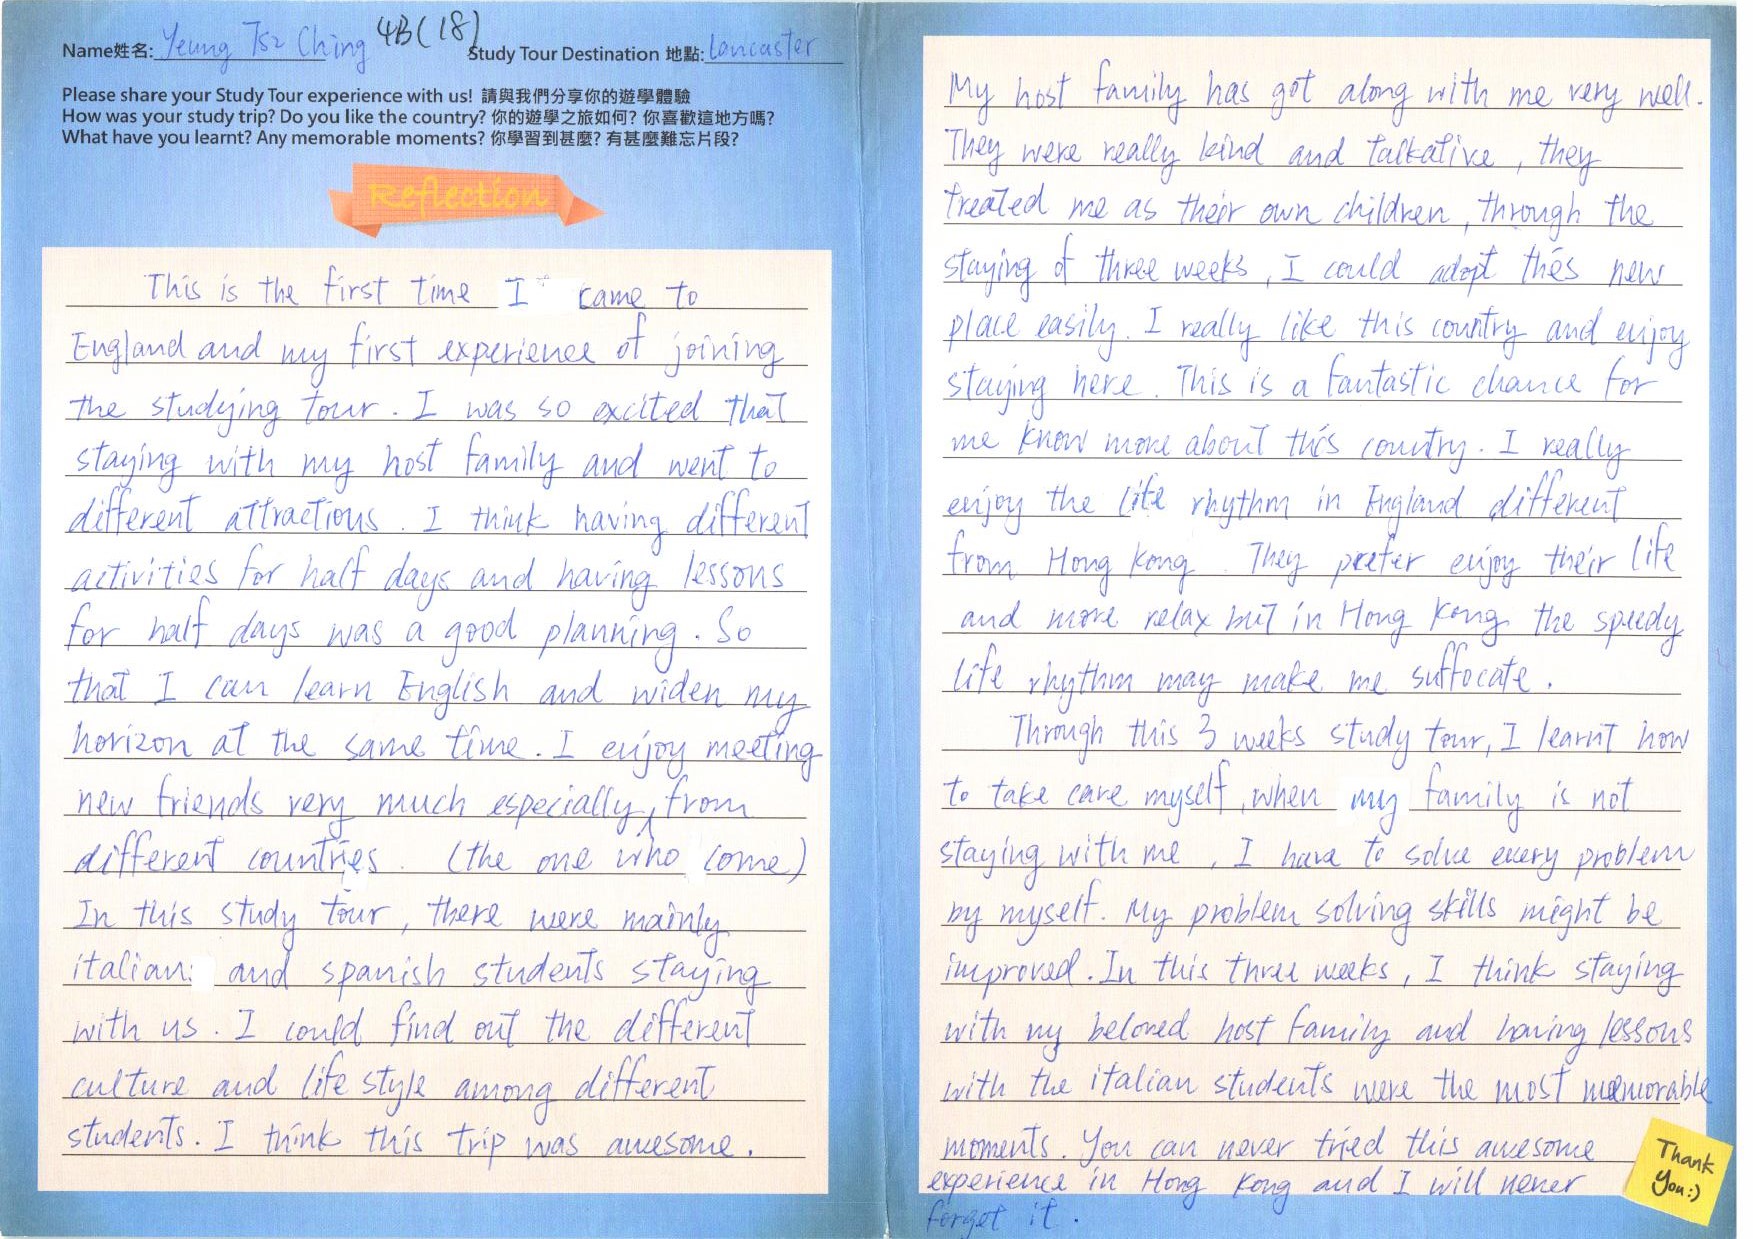 Name姓名: Yeung Tsz Ching 4B(18) Study Tour Destination 地點: Lancaster
Please share your Study Tour experience with us! 請與我們分享你的遊學體驗
How was your study trip? Do you like the country? 你的遊學之旅如何? 你喜歡這地方嗎?
What have you learnt? Any memorable moments? 你學習到甚麼? 有甚麼難忘片段?
Reflection
This is the first time I came to
England and my first experience of joining
the studying tour. I was so excited that
staying with my host family and went to
different attractions. I think having different
activities for half days and having lessons
for half days was a good planning. So
that I can learn English and widen my
horizon at the same time. I enjoy meeting
new friends very much especially, from
different countries. (the one who come)
In this study tour, there were mainly
italian and spanish students staying
with us. I could find out the different
culture and life style among different
students. I think this trip was awesome.
My host family has got along with me very well.
They were really kind and talkative, they
treated me as their own children, through the
staying of three weeks, I could adopt this new
place easily. I really like this country and enjoy
staying here. This is a fantastic chance for
me know more about this country. I really
enjoy the life rhythm in England different
from Hong Kong. They prefer enjoy their life
and more relax but in Hong Kong the speedy
life rhythm may make me suffocate.
Through this 3 weeks study tour, I learnt how
to take care myself, when my family is not
staying with me, I have to solve every problem
by myself. My problem solving skills might be
improved. In this three weeks, I think staying
with my beloved host family and having lessons
with the italian students were the most memorable
moments. You can never tried this awesome
experience in Hong Kong and I will never
forget it.
Thank
You:)